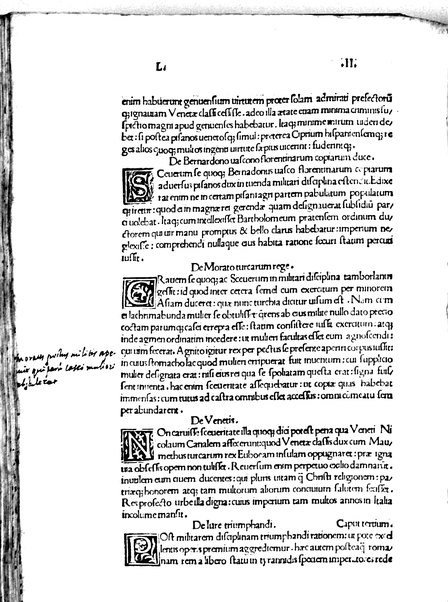 L. .II.
enim habuerunt genuensium uirtutem preter solam admirati prefectorũ
q; ignauiam Venetæ classi cessisse. adeo illa ætate etiam minima criminis su/
spitio magni apud genuenses habebatur. Itaq; minime mirum uideri de/
bet: si postea pisanos uenetosq; simul: preterea Ciprium hispaniensemq; re
ges alios quoq; multos ingenti uirtute sæpius uicerint: fuderintq;.
De Bernardono uascono florentinarum copiarum duce.
SEueerum se quoq; Bernadonus uasco florentinarum copiarum
aduersus pisanos dux in tuenda militari disciplina ostendit. Ed
rat enim ne in certam pisani agri partem pabulatum populatum
q; iretur: quod ea in magna re gerenda quam designauerat subsidiū par/
ci uolebat. Itaq; cum intellexisset Bartholomeum pratensem ordinum du/
ctorem qui uir manu promptus & bello clarus habebatur: imperium ne/
glexisse: comprehendi nullaque eius habita ratione securi statim percuti
iussit.
De Morato turcarum rege.
GRauem se quoq; ac Seuerum in militari disciplina tamborlanus
gessit: id quod inter cetera semel cum exercitum per minorem
Asiam duceret: quæ nunc turchia dicitur uisum est. Nam cum
ei lachrimabunda mulier se obtulisset querens ab eius milite nullo dato precio
coctam parumq; casei errepta esse: statim consistere iussit exercitum. atq;
inde agmen ordinatim incedere: ut mulieri facultas esset eum agnoscendi:
qui uim fecerat. Agnito igitur rex per pectus se presente aperiri corpus iussit:
in cuius stomacho lac quod mulieri eripuerat fuit inuentum: cui supplicio
mulier designata erat: nisi eius res qua se spoliatam questa erat: signa fuis/
sent inuenta. hac enim seueritate assequebatur: ut copiæ quas habebat
immensas: cum tutus ad castra omnibus esset accessus: omni cōmeatu sem
per abundarent.
De Venetis.
NOn caruisse seueritate illa quoq; dici potest pena qua Veneti Ni
colaum Canalem affecerunt: quod Venetæ classis dux cum Mau/
methus turcarum rex Euboeam insulam oppugnaret: præ igna
uia obsessis opem non tulisset. Reuersum enim perpetuo exilio damnarūt.
inutilem eum ciuem ducentes: qui pluris uitam q̃ Christi religionem: pa/
triæq; honorem atq; tam multorum aliorum conciuium salutem fecisset.
Res profecto urbe illa digna: cuius imperium tam multos annos in Italia
incolume mansit.
De Iure triumphandi. Caput tertium.
POst militarem disciplinam triumphandi rationem: ut pote excel
lentis operis premium aggrediemur. hæc autem posteaq̃ roma/
nam rem a libero statu in tyrannidis speciem imperatores rede